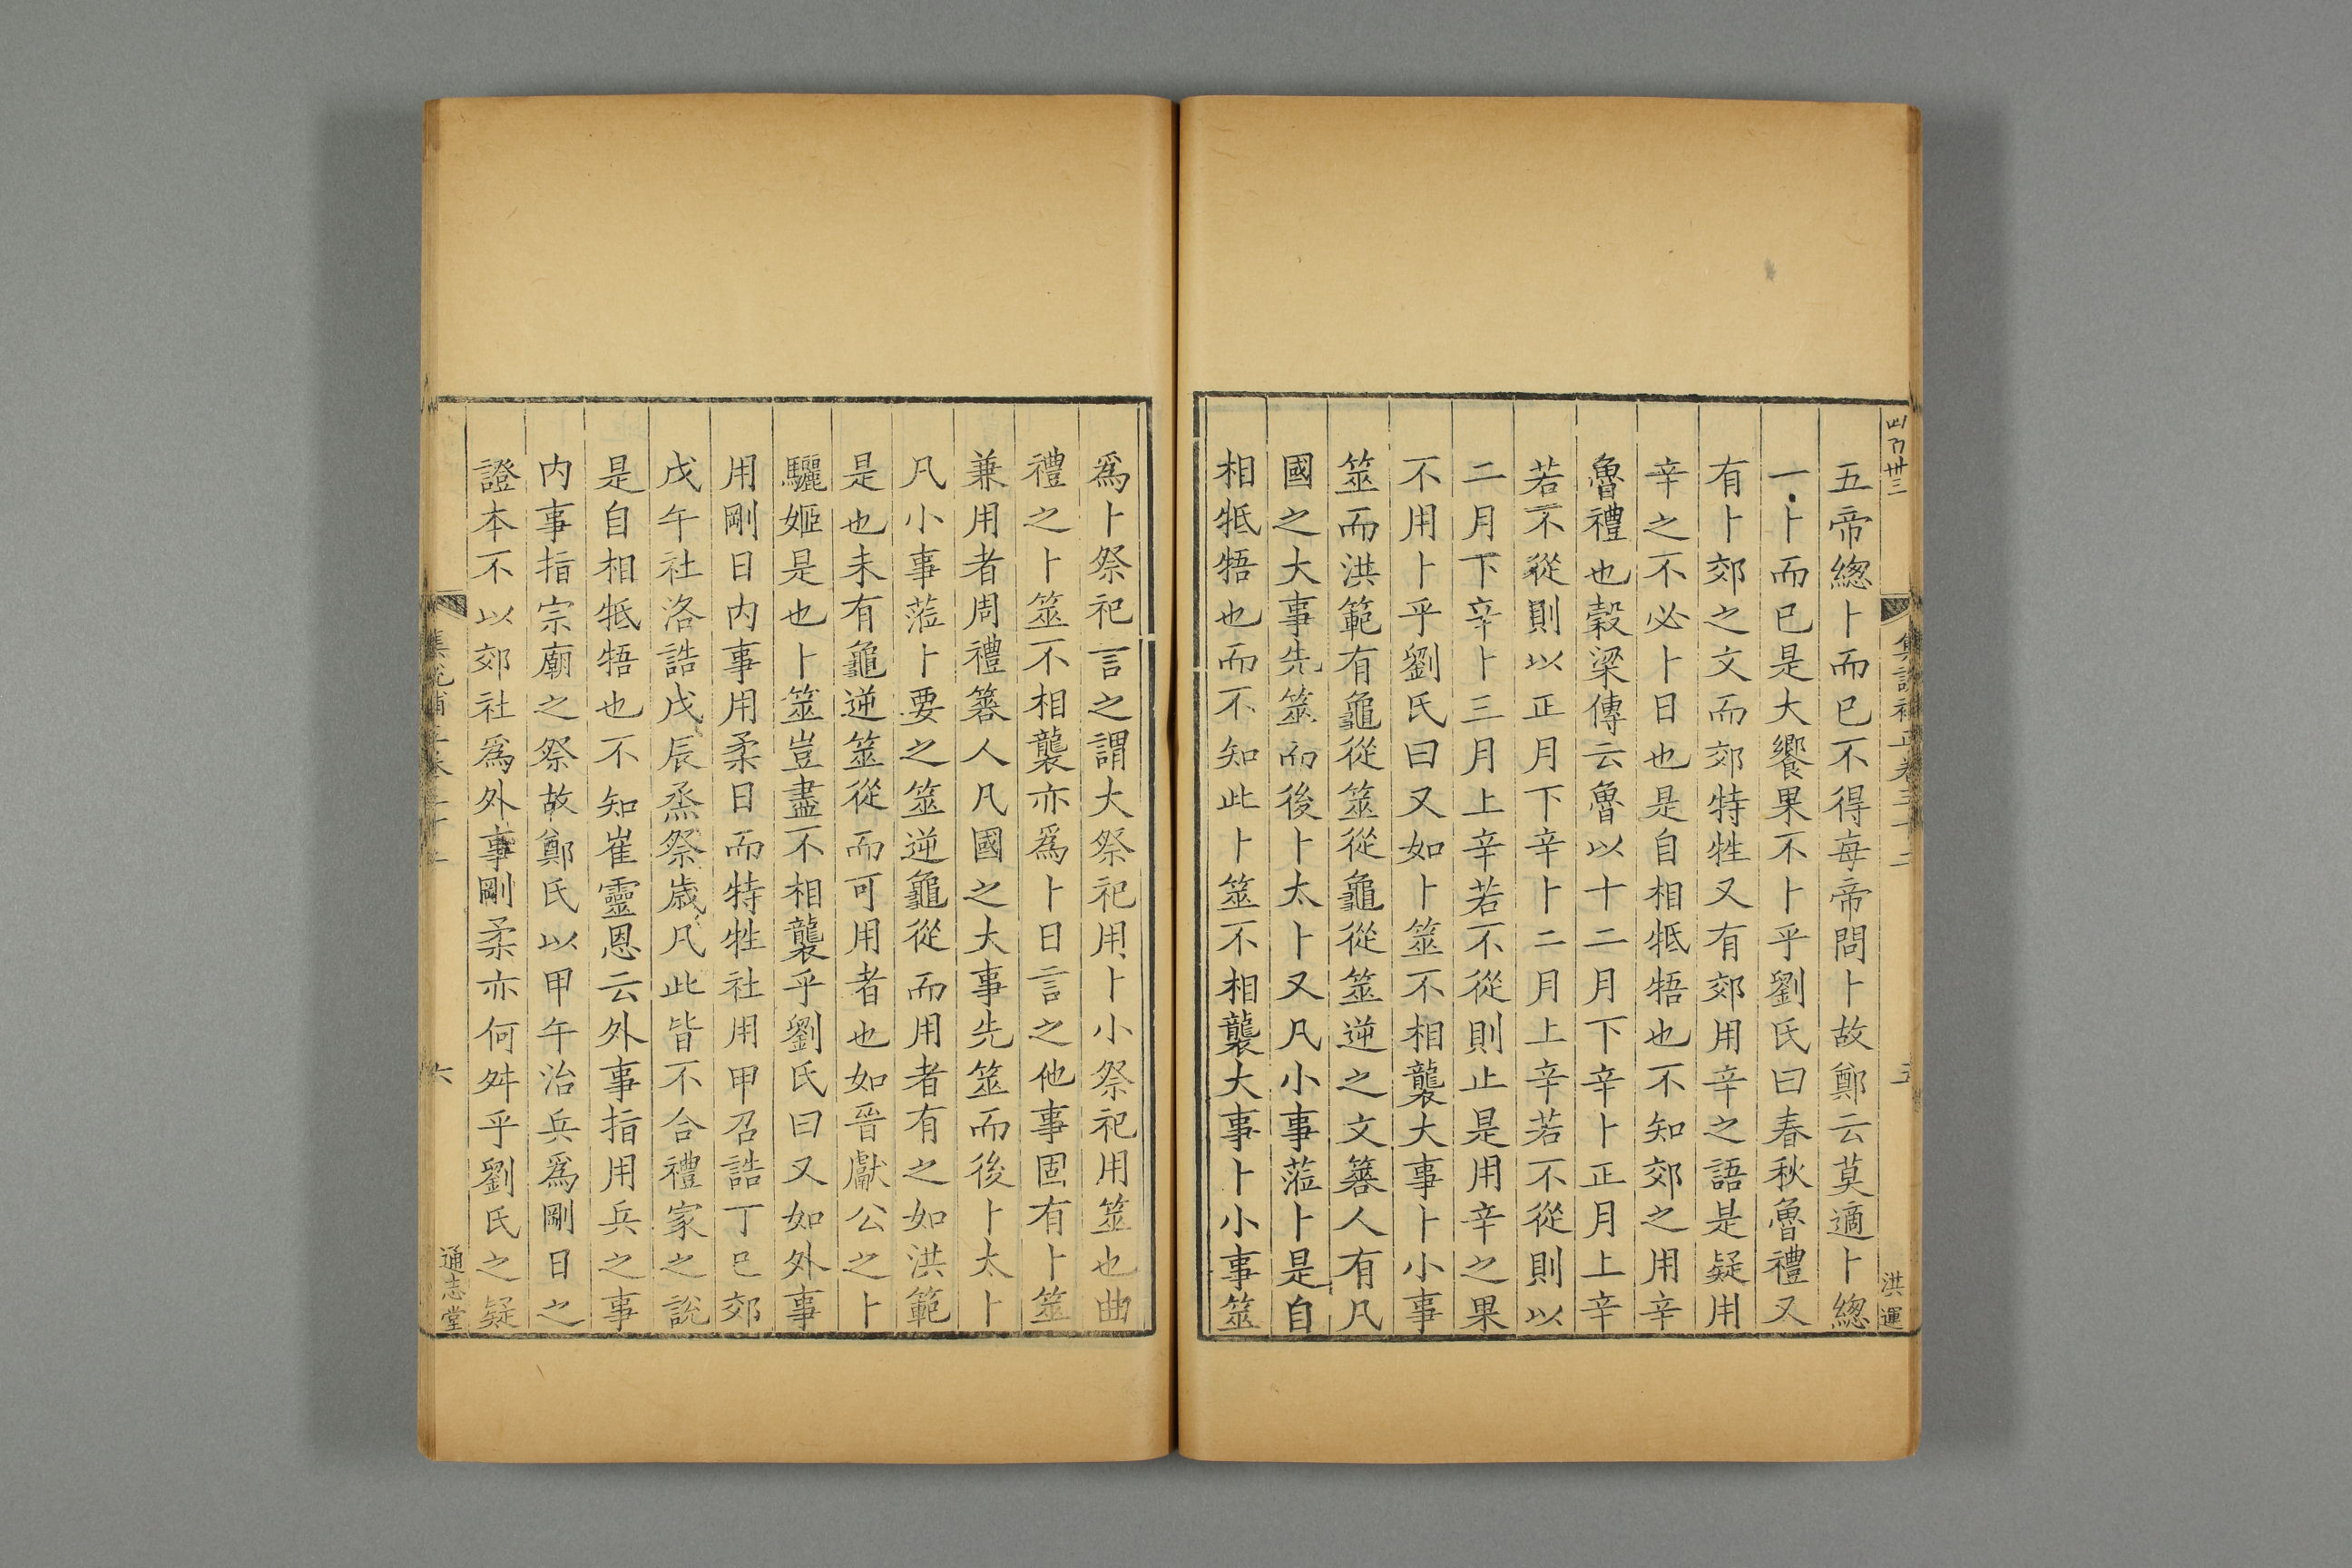 五帝緫卜而已不得每帝問卜故鄭云莫適卜緫
一卜而已是大饗果不卜乎劉氏曰春秋魯禮又
有卜郊之文而郊特牲又有郊用辛之語是疑用
辛之不必卜日也是自相牴牾也不知郊之用辛
魯禮也穀梁傳云魯以十二月下辛卜正月上辛
若不從則以正月下辛卜二月上辛若不從則以
二月下辛卜三月上辛若不從則止是用辛之果
不用卜乎劉氏曰又如卜筮不相襲大事卜小事
筮而洪範有龜從筮從龜從筮逆之文簭人有凡
國之大事先筮而後卜太卜又凡小事蒞卜是自
相牴牾也而不知此卜筮不相襲大事卜小事筮
洪運
爲卜祭祀言之謂大祭祀用卜小祭祀用筮也曲
禮之卜筮不相襲亦爲卜日言之他事固有卜筮
兼用者周禮簭人凡國之大事先筮而後卜太卜
凡小事蒞卜要之筮逆龜從而用者有之如洪範
是也未有龜逆筮從而可用者也如晉獻公之卜
驪姬是也卜筮豈盡不相襲乎劉氏曰又如外事
用剛日内事用柔日而特牲社用甲召誥丁巳郊
戊午社洛誥戊辰烝祭歲凡此皆不合禮家之說
是自相牴牾也不知崔靈恩云外事指用兵之事
内事指宗廟之祭故鄭氏以甲午治兵爲剛日之
證本不以郊社爲外事剛柔亦何舛乎劉氏之疑
六
通志堂